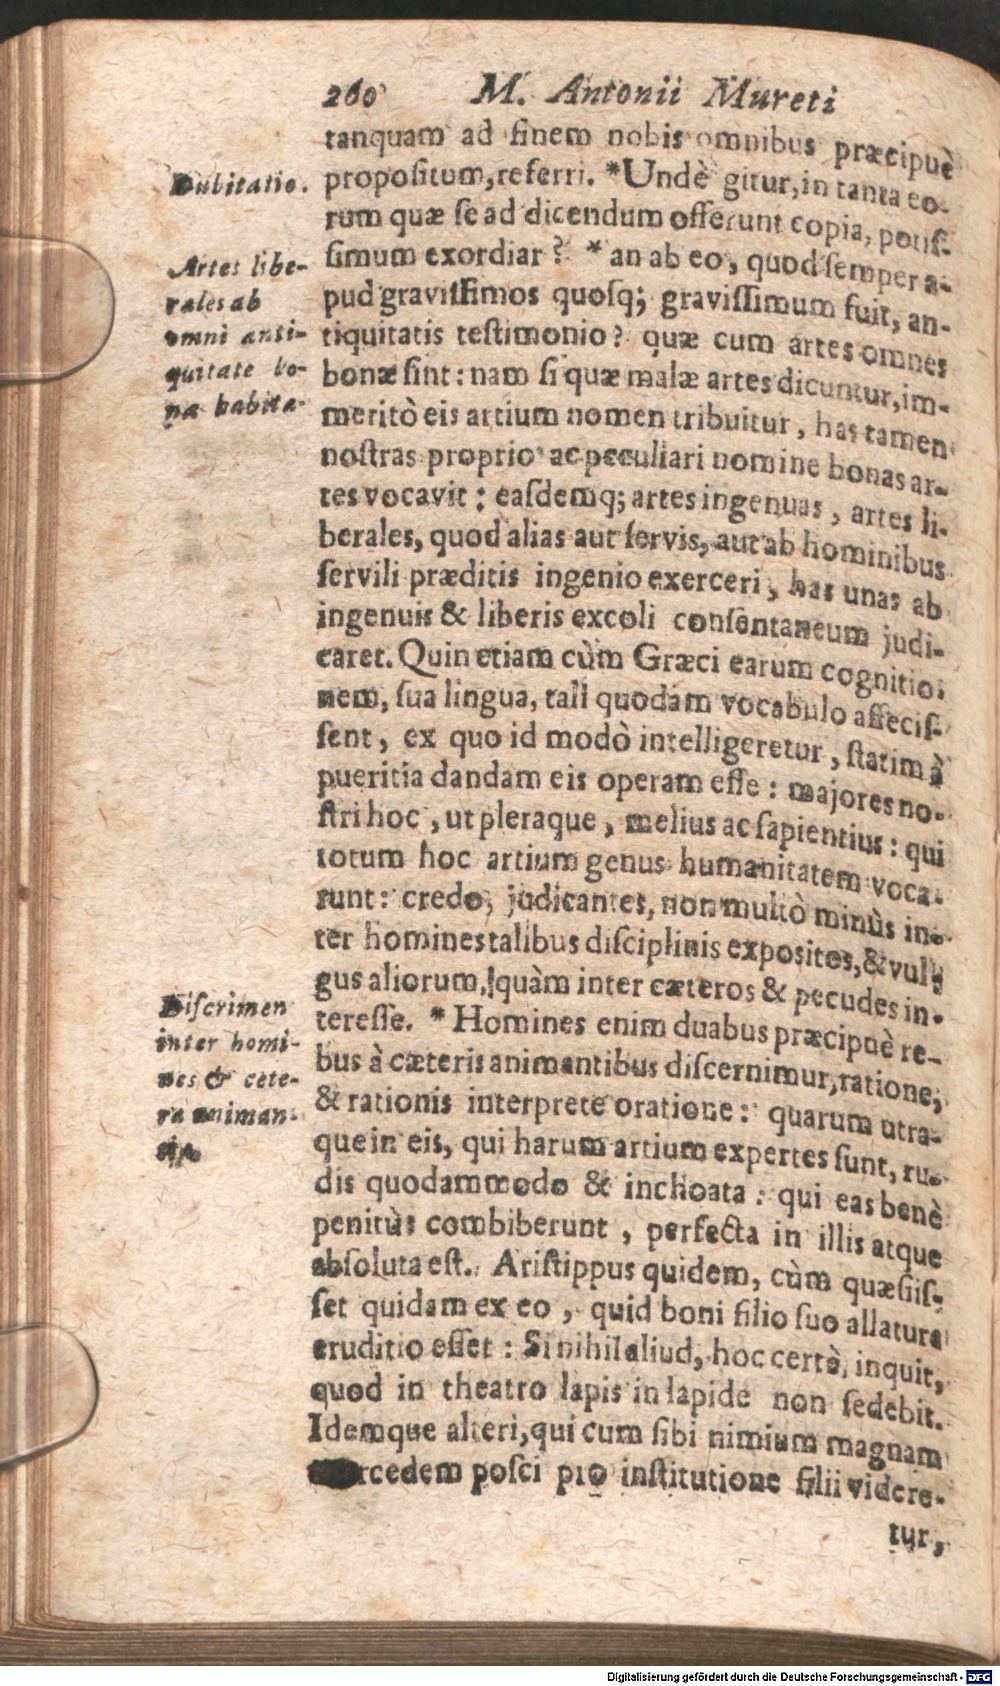 260 M. Antonii Mureti
tanquam ad finem nobis omnibus præcipuè
Dubitatio.
propositum, referri. *Undè gitur, in tanta eo-
rum quæ se ad dicendum offerunt copia, potiſ-
ſimum exordiar? * an ab eo, quod ſemper a-
Artes libe-
rales ab
omni anti-
quitate bo-
næ habita-
pud graviſſimos quoſq; graviſſimum fuit, an-
tiquitatis teſtimonio? quæ cum artes omnes
bonæ ſint: nam ſi quæ malæ artes dicuntur, im-
meritò eis artium nomen tribuitur, has tamen
noſtras proprio ac peculiari nomine bonas ar-
tes vocavit: eaſdemq; artes ingenuas, artes li-
berales, quod alias aut ſervis, aut ab hominibus
ſervili præditis ingenio exerceri, has unas ab
ingenuis & liberis excoli conſentaneum judi-
caret. Quin etiam cùm Græci earum cognitio-
nem, ſua lingua, tali quodam vocabulo affeciſ-
ſent, ex quo id modò intelligeretur, ſtatim à
pueritia dandam eis operam eſſe: majores no-
ſtri hoc, ut pleraque, melius ac ſapientius: qui
totum hoc artium genus humanitatem voca-
runt: credo, judicantes, non multò minùs in-
ter homines talibus diſciplinis expositos, & vul-
gus aliorum, quàm inter cæteros & pecudes in-
tereſſe. * Homines enim duabus præcipuè re-
Diſcrimen
inter homi-
nes & cete-
ra animan-
tia
bus à cæteris animantibus diſcernimur, ratione,
& rationis interprete oratione: quarum utra-
que in eis, qui harum artium expertes ſunt, ru-
dis quodammodo & inchoata: qui eas benè
penitùs combiberunt, perfecta in illis atque
abſoluta eſt. Ariſtippus quidem, cùm quæſiiſ-
ſet quidam ex eo, quid boni filio ſuo allatura
eruditio eſſet: Si nihil aliud, hoc certè, inquit,
quod in theatro lapis in lapide non ſedebit.
Idemque alteri, qui cum ſibi nimium magnam
mercedem poſci pro inſtitutione filii videre-
tur,
Digitalisierung gefördert durch die Deutsche Forschungsgemeinschaft - DFG